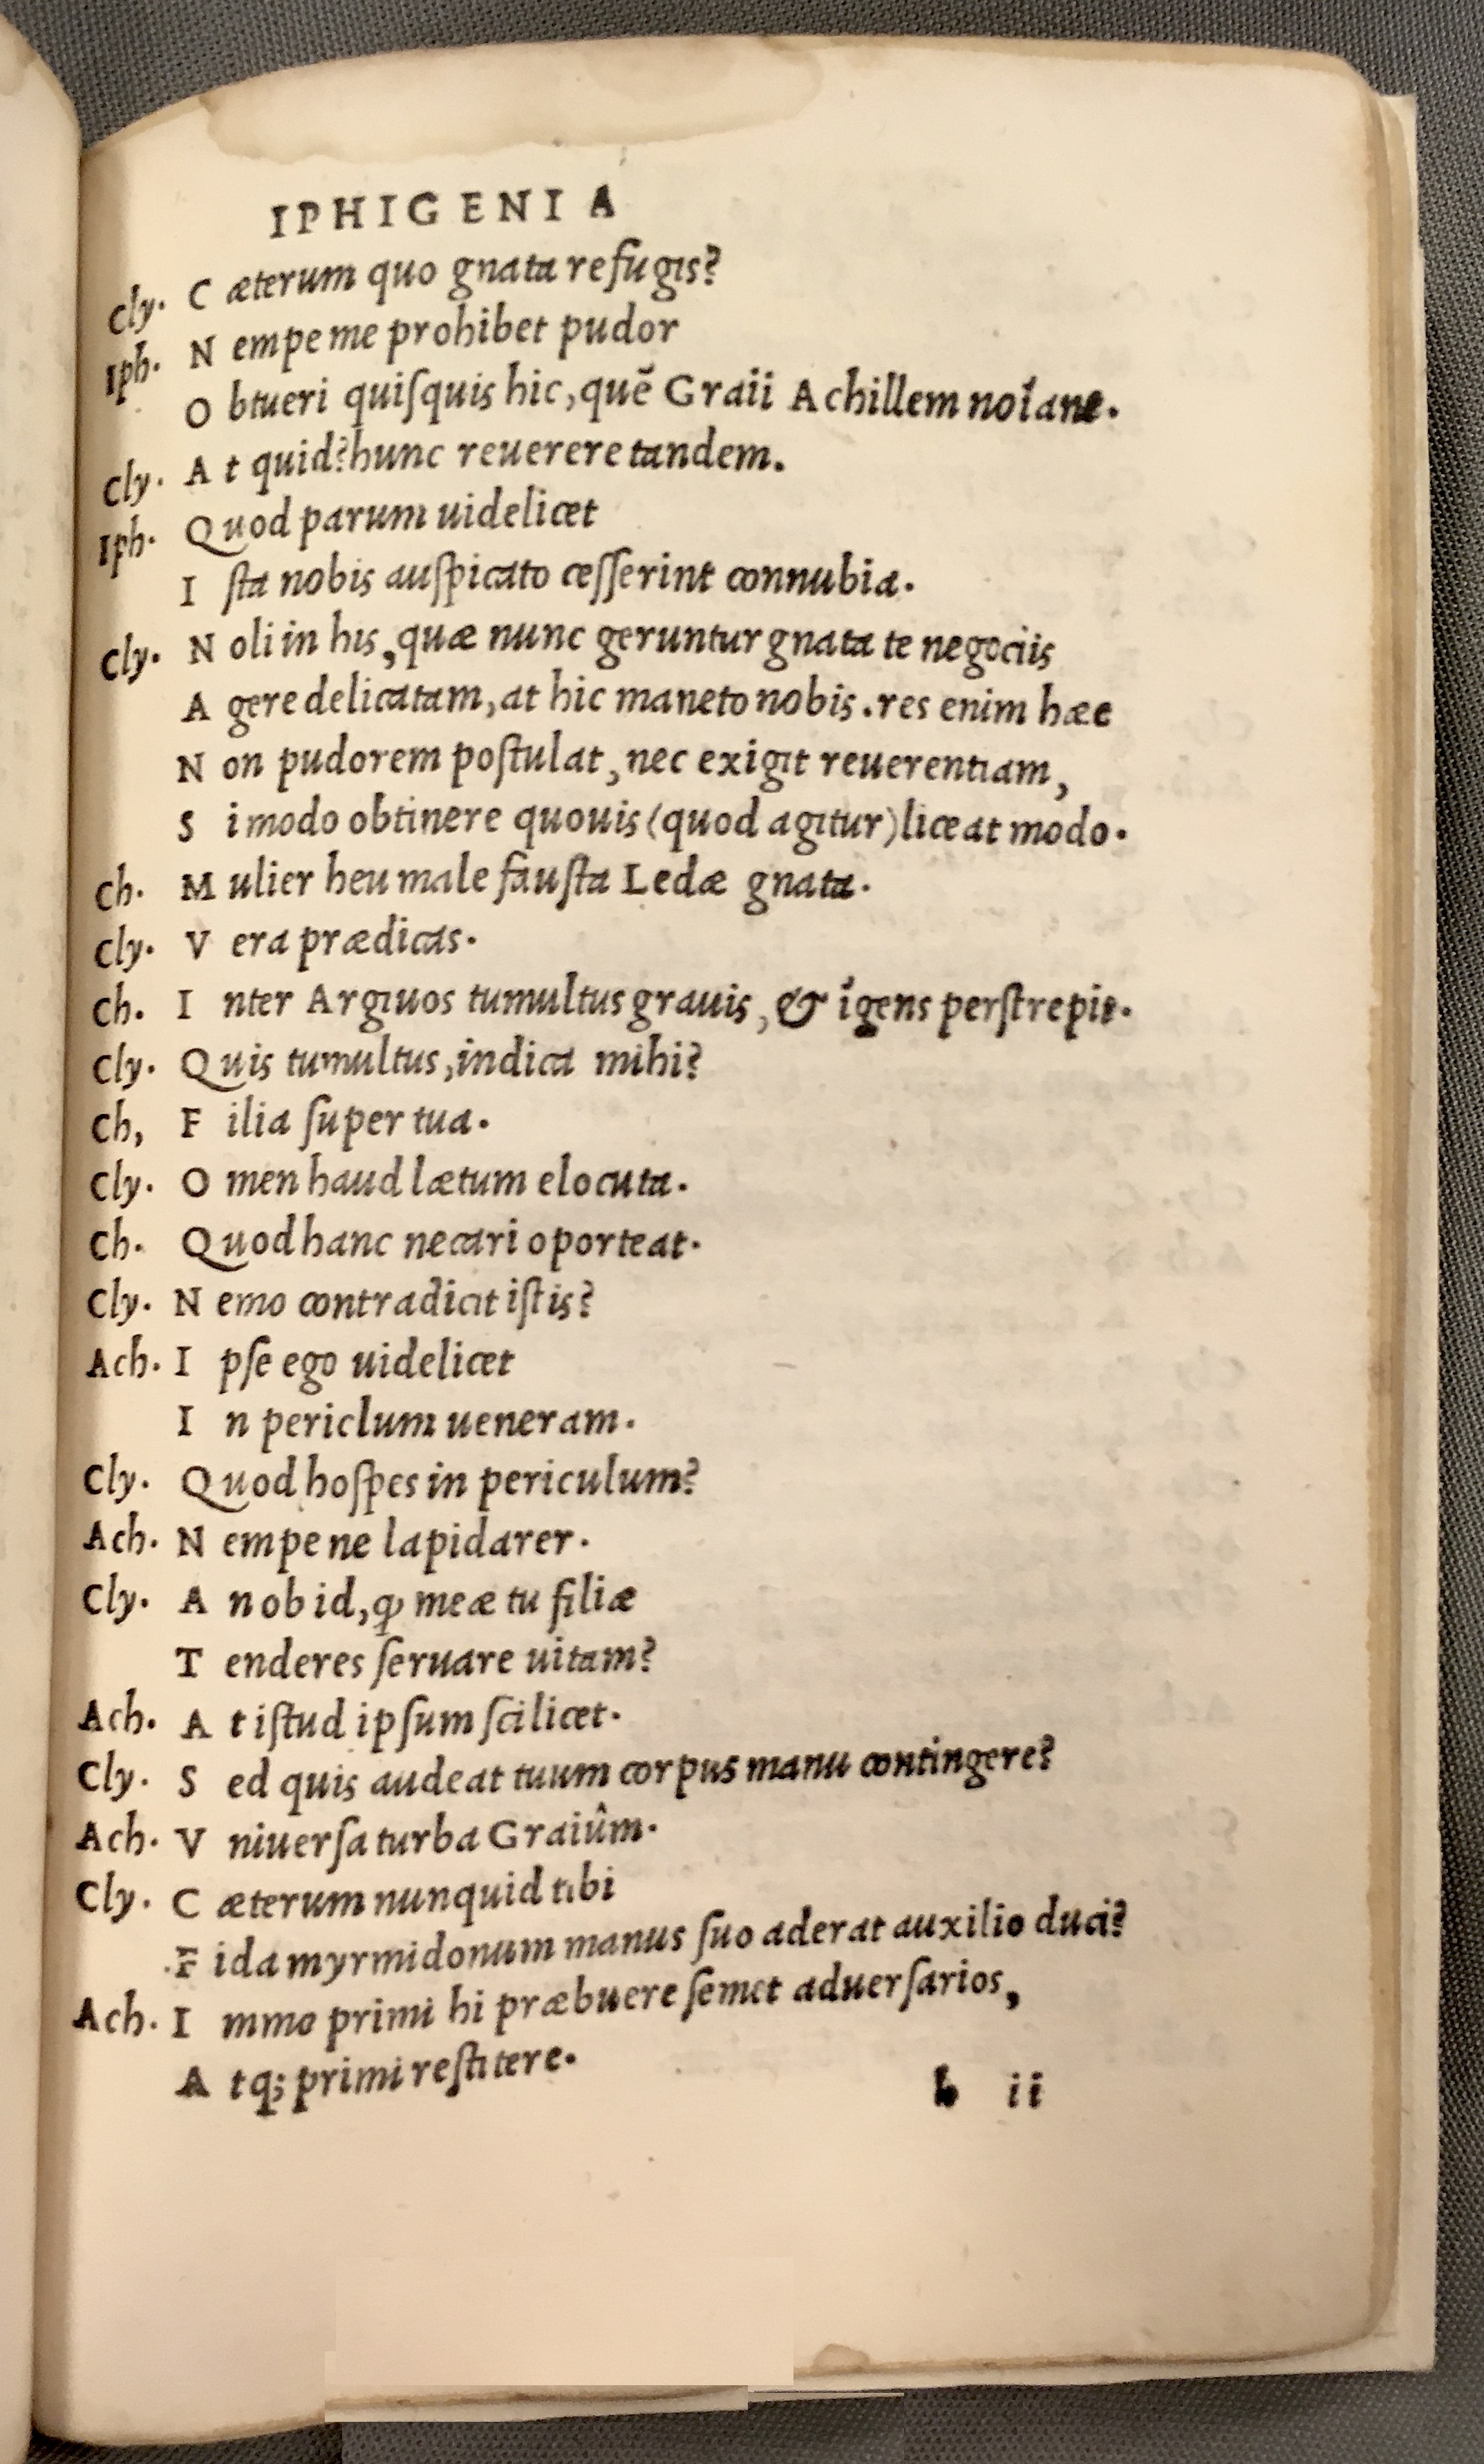 IPHIGENIA
Cly. Cæterum quo gnata refugis?
Iph. Nempe me prohibet pudor
Obtueri quiſquis hic, quẽ Graii Achillem noĩant.
Cly. At quid? hunc reuerere tandem.
Iph. Quod parum uidelicet
Iſta nobis auſpicato ceſſerint connubia.
Cly. Noli in his, quæ nunc geruntur gnata te negociis
Agere delicatam, at hic maneto nobis. res enim hæc
Non pudorem poſtulat, nec exigit reuerentiam,
Si modo obtinere quouis (quod agitur) liceat modo.
Ch. Mulier heu male fauſta Ledæ gnata.
Cly. Vera prædicas.
Ch. Inter Argiuos tumultus grauis, & ĩgens perſtrepit.
Cly. Quis tumultus, indica mihi?
Ch, Filia ſuper tua.
Cly. Omen haud lætum elocuta.
Ch. Quod hanc necari oporteat.
Cly. Nemo contradicit iſtis?
Ach. Ipſe ego uidelicet
In periclum ueneram.
Cly. Quod hoſpes in periculum?
Ach. Nempe ne lapidarer.
Cly. An ob id, ꝙ meæ tu filiæ
Tenderes ſeruare uitam?
Ach. At iſtud ipſum ſcilicet.
Cly. Sed quis audeat tuum corpus manu contingere?
Ach. Vniuerſa turba Graiûm.
Cly. Cæterum nunquid tibi
Fida myrmidonum manus ſuo aderat auxilio duci?
Ach. Immo primi hi præbuere ſemet aduerſarios,
Atq; primi reſtitere.
b ii